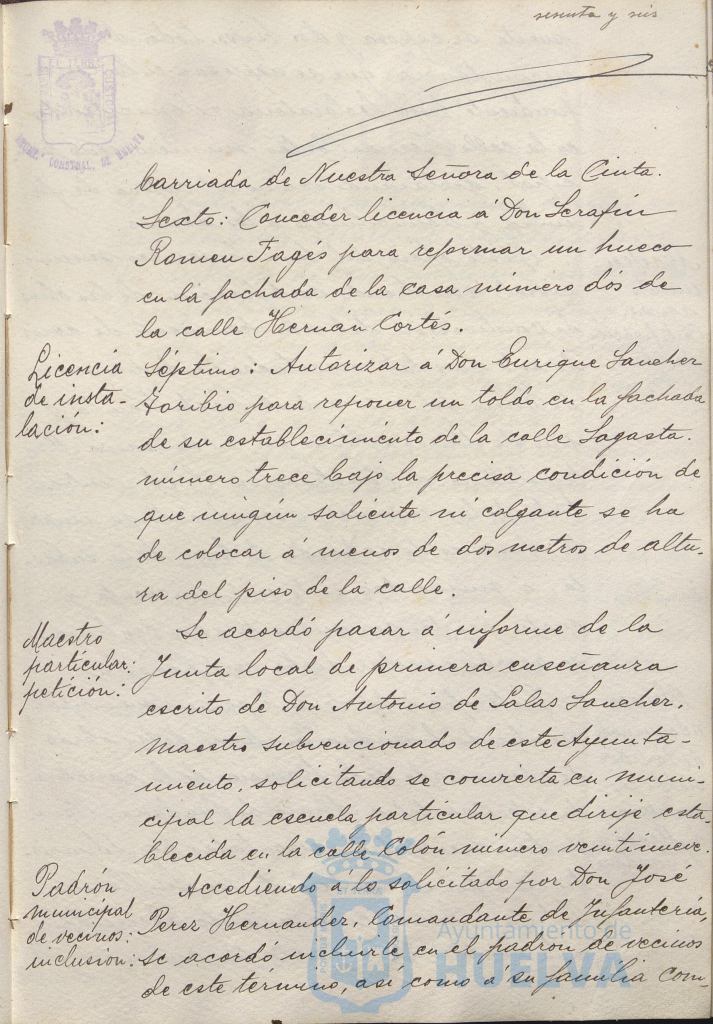 sesenta y seis
AYUNT. CONSTNAL. DE HUELVA
barriada de Nuestra Señora de la Cinta.
Sexto: Conceder licencia á Don Serafín
Romeu Fagés para reformar un hueco
en la fachada de la casa número dós de
la calle Hernán Cortés.
Licencia
de insta-
lación:
Séptimo: Autorizar á Don Enrique Sanchez
Toribio para reponer un toldo en la fachada
de su establecimiento de la calle Sagasta.
número trece bajo la precisa condición de
que ningún saliente ni colgante se ha
de colocar á menos de dos metros de altu-
ra del piso de la calle.
Maestro
particular:
petición:
Se acordó pasar á informe de la
Junta local de primera enseñanza
escrito de Don Antonio de Salas Sanchez,
maestro subvencionado de este Ayunta-
miento, solicitando se convierta en muni-
cipal la escuela particular que dirije esta-
blecida en la calle Colón número veintinueve.
Padrón
municipal
de vecinos:
inclusión:
Accediendo á lo solicitado por Don José
Perez Hernandez, Comandante de Infantería,
se acordó incluirle en el padron de vecinos
de este término, así como á su familia com-
Ayuntamiento de
HUELVA